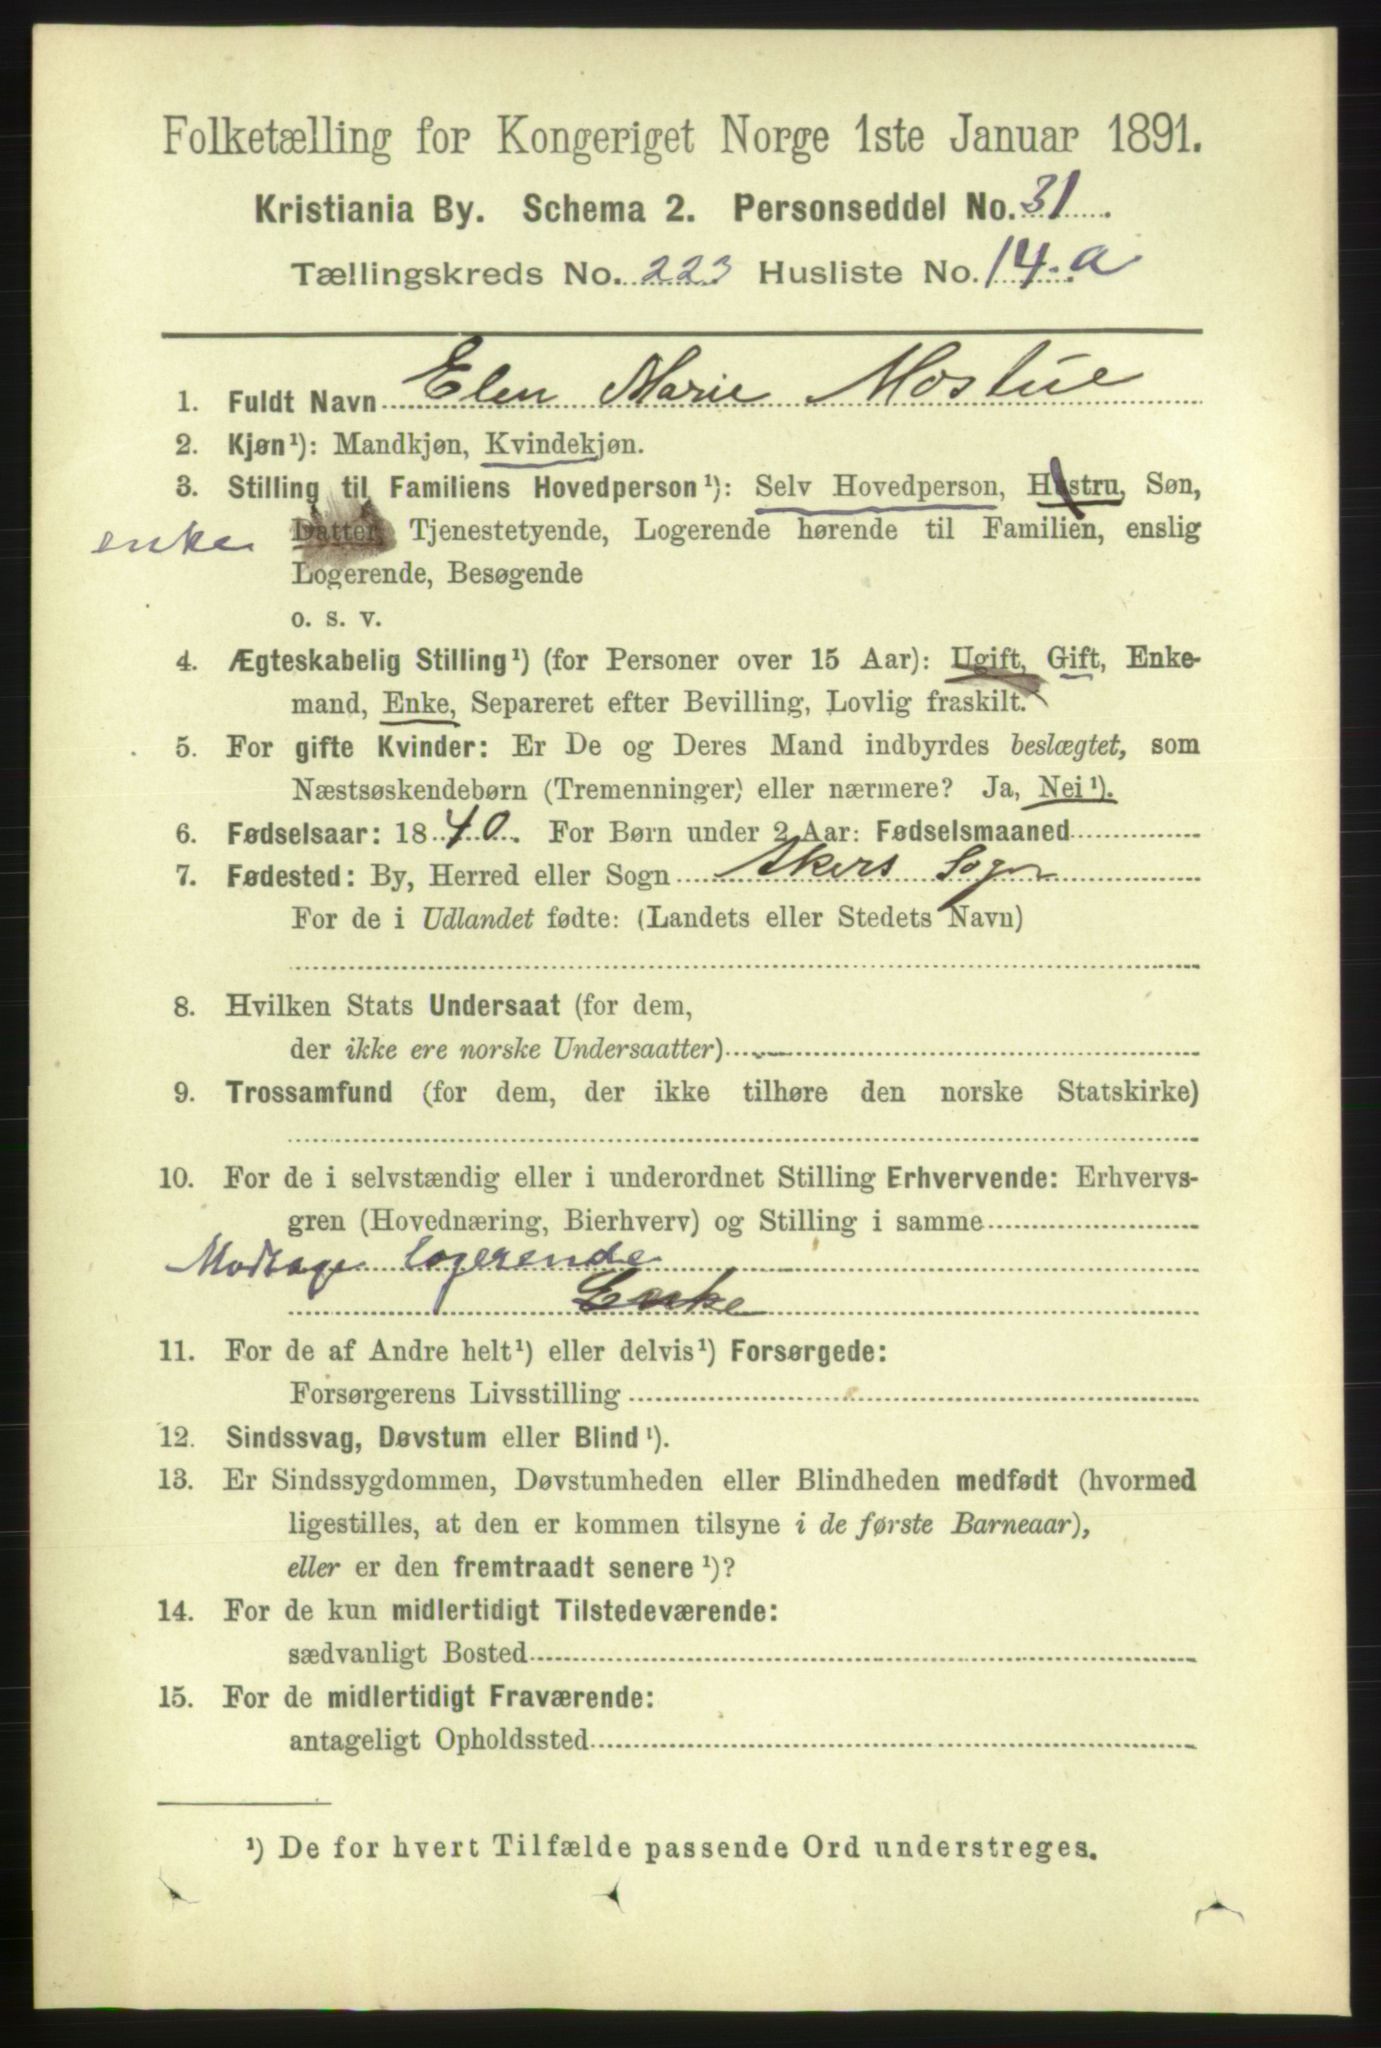 Folketælling for Kongeriget Norge 1ste Januar 1891.
Kristiania By. Schema 2. Personseddel No. 31
Tællingskreds No. 223 Husliste No. 14. a
1. Fuldt Navn Elen Marie Mostue
2. Kjøn¹): Mandkjøn, Kvindekjøn.
3. Stilling til Familiens Hovedperson¹): Selv Hovedperson, Hustru, Søn,
enke Datter, Tjenestetyende, Logerende hørende til Familien, enslig
Logerende, Besøgende
o. s. v.
4. Ægteskabelig Stilling¹) (for Personer over 15 Aar): Ugift, Gift, Enke-
mand, Enke, Separeret efter Bevilling, Lovlig fraskilt.
5. For gifte Kvinder: Er De og Deres Mand indbyrdes beslægtet, som
Næstsøskendebørn (Tremenninger) eller nærmere? Ja, Nei¹).
6. Fødselsaar: 1840. For Børn under 2 Aar: Fødselsmaaned
7. Fødested: By, Herred eller Sogn Akers Sogn
For de i Udlandet fødte: (Landets eller Stedets Navn)
8. Hvilken Stats Undersaat (for dem,
der ikke ere norske Undersaatter)
9. Trossamfund (for dem, der ikke tilhøre den norske Statskirke)
10. For de i selvstændig eller i underordnet Stilling Erhvervende: Erhvervs-
gren (Hovednæring, Bierhverv) og Stilling i samme
Modtage logerende
Enke
11. For de af Andre helt¹) eller delvis¹) Forsørgede:
Forsørgerens Livsstilling
12. Sindssvag, Døvstum eller Blind¹).
13. Er Sindssygdommen, Døvstumheden eller Blindheden medfødt (hvormed
ligestilles, at den er kommen tilsyne i de første Barneaar),
eller er den fremtraadt senere¹)?
14. For de kun midlertidigt Tilstedeværende:
sædvanligt Bosted
15. For de midlertidigt Fraværende:
antageligt Opholdssted
¹) De for hvert Tilfælde passende Ord understreges.